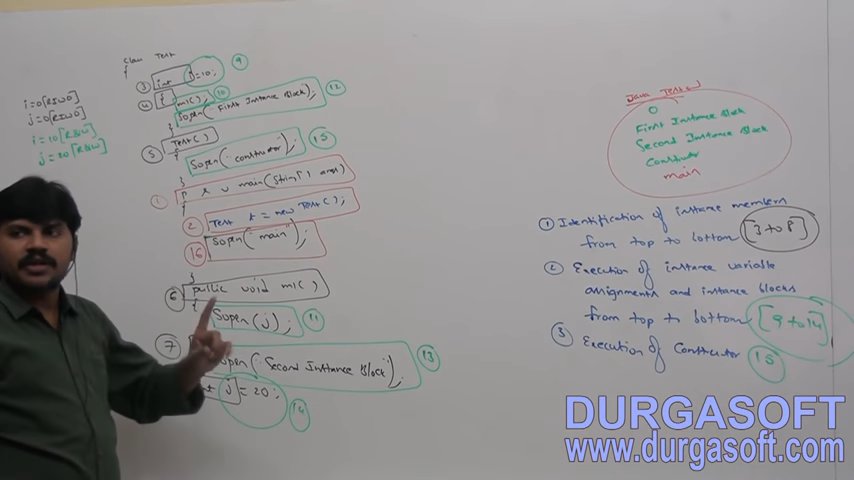 class Test
{
③ int i=10; ⑨
④ { m1(); ⑩
Sopln("First Instance Block"); ⑫
}
⑤ Test()
{
Sopln("constructor"); ⑮
}
① p s v main(String[] args)
{
② Test t = new Test();
⑯ Sopln("main");
}
⑥ public void m1()
{
Sopln(j); ⑪
⑦
Sopln("Second Instance Block"); ⑬
int j = 20; ⑭
i=0[RIWO]
j=0[RIWO]
i=10[R&W]
j=20[R&W]
Java Test↵
0
First Instance Block
Second Instance Block
Constructor
main
① Identification of instance members
from top to bottom [3 to 8]
② Execution of instance variable
assignments and instance blocks
from top to bottom [9 to 14]
③ Execution of Constructor 15
DURGASOFT
www.durgasoft.com